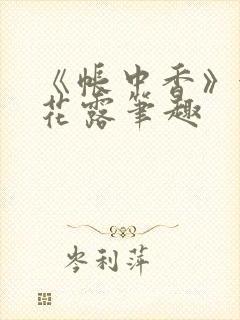 《帐中香》
花露笔趣
岑利萍